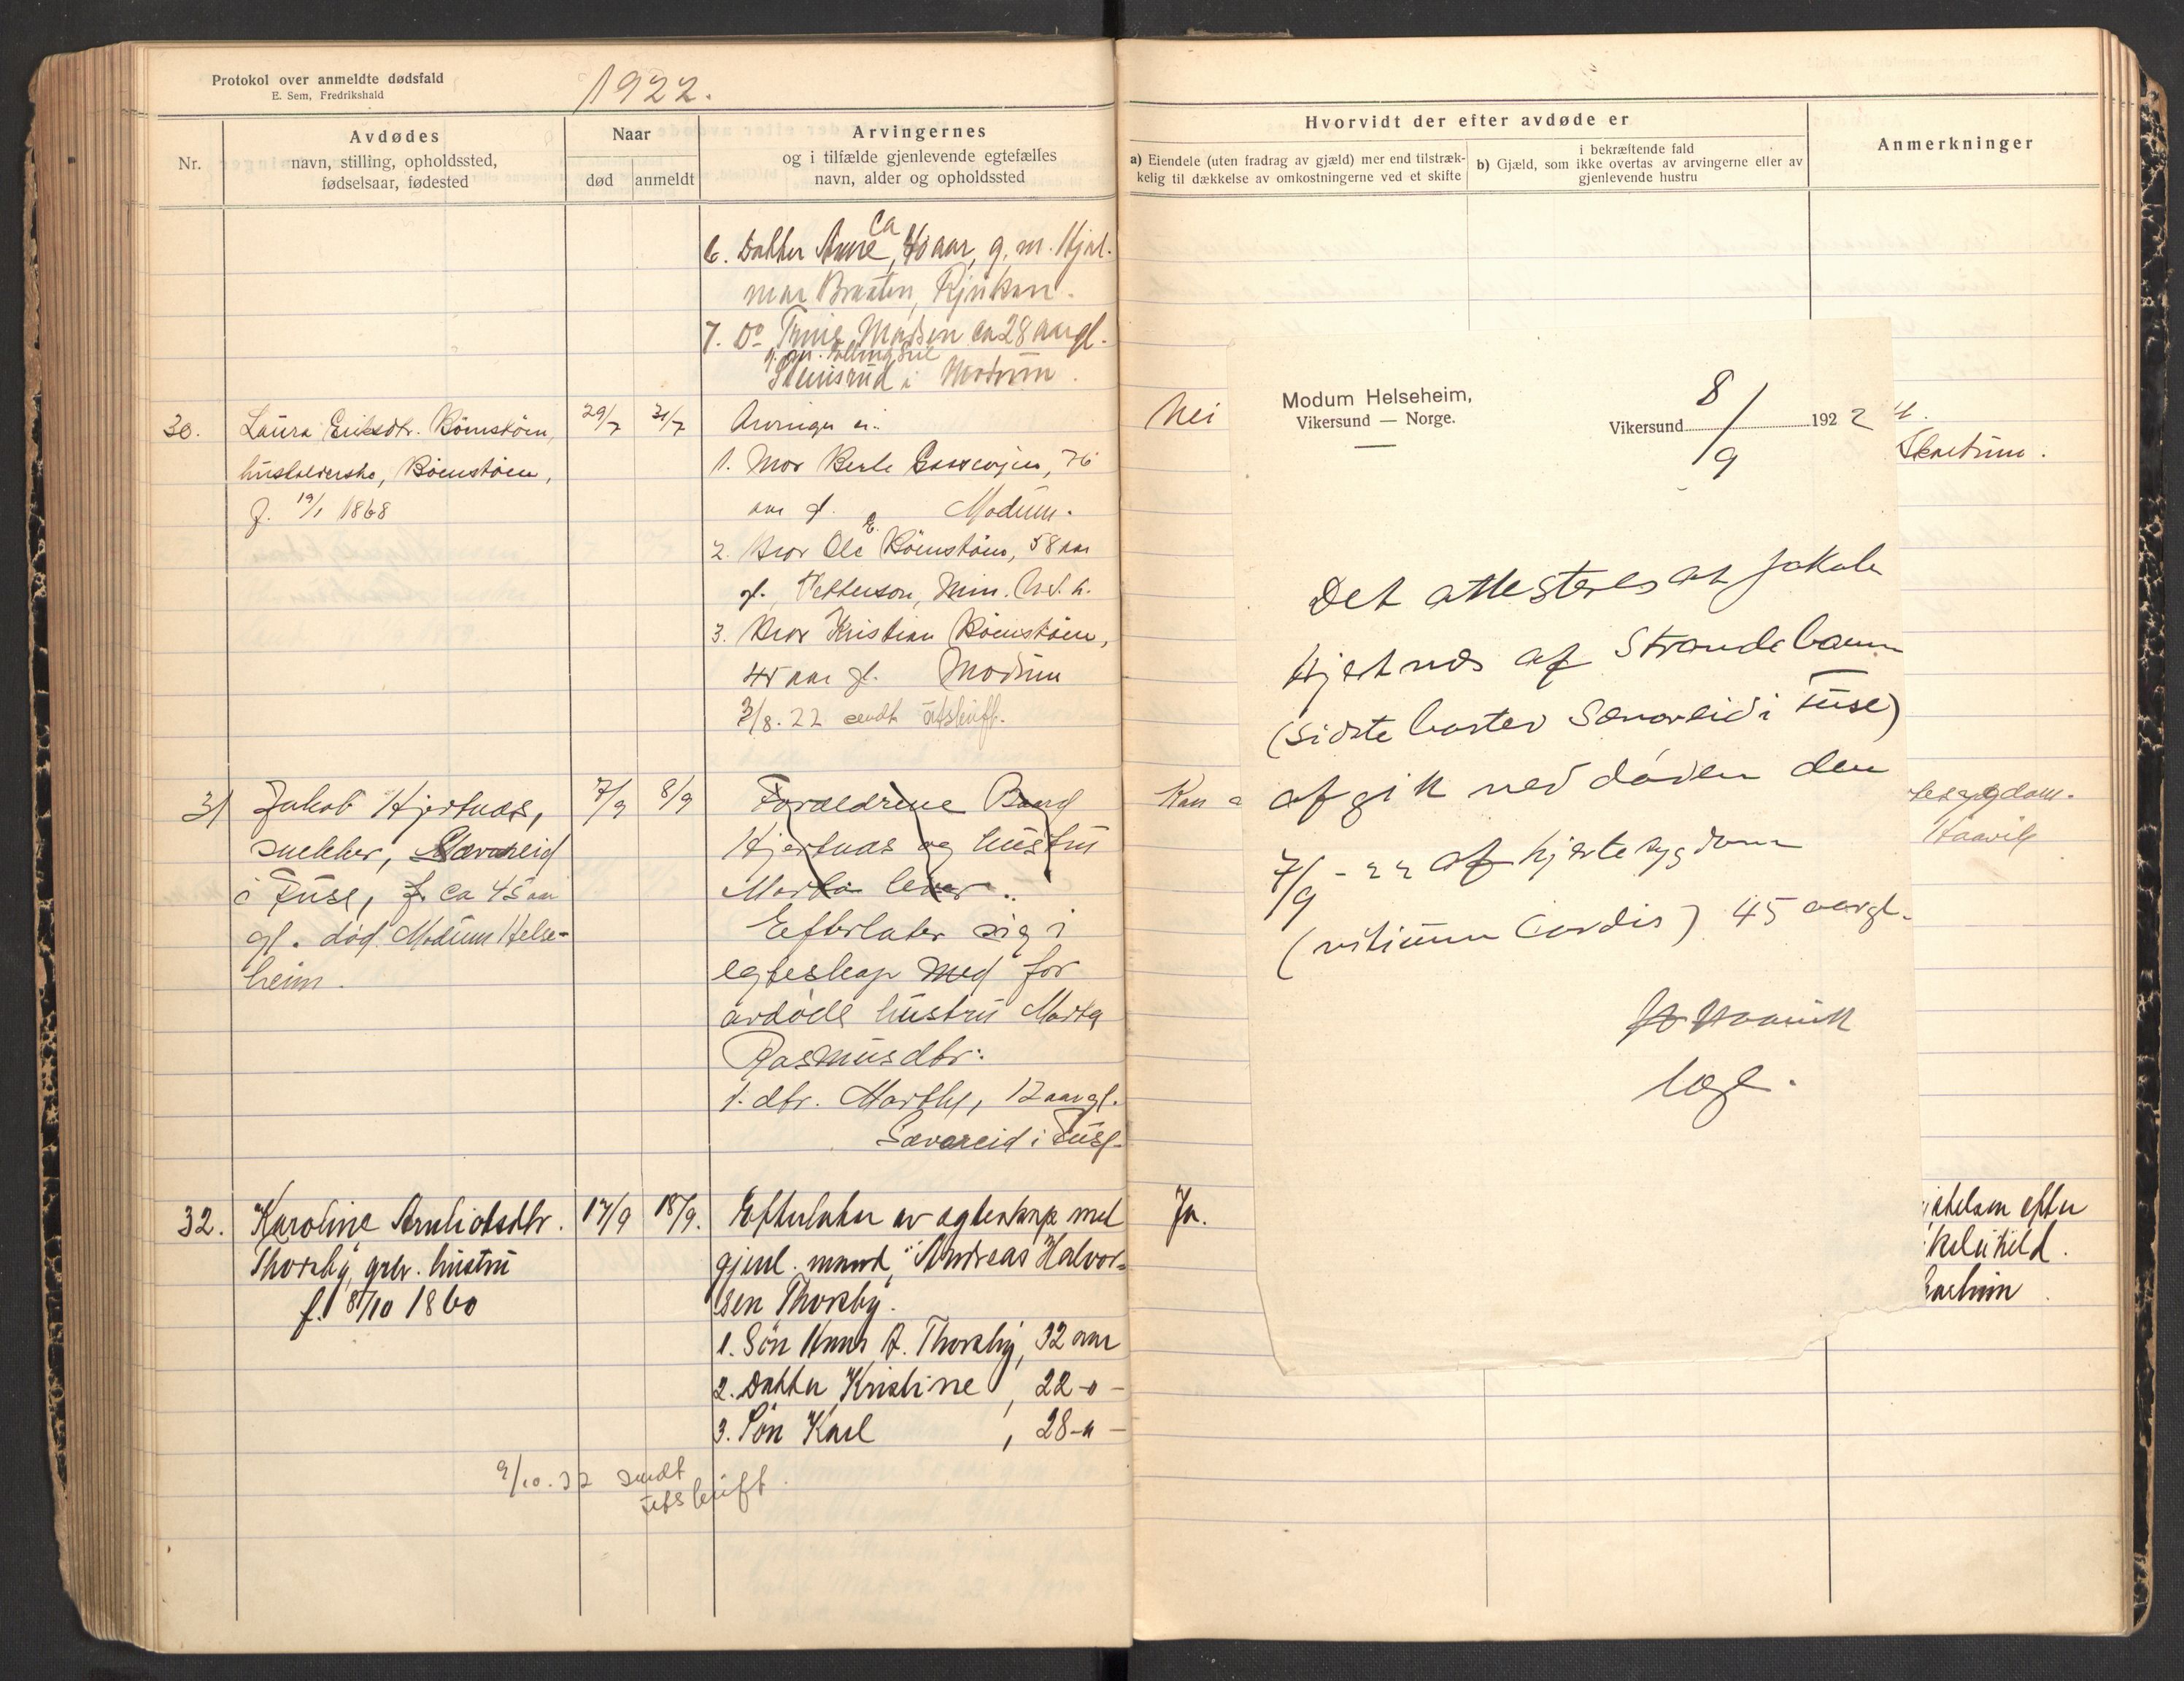 Protokol over anmeldte dødsfald
E. Sem, Fredrikshald
1922.
Nr.
Avdødes
navn, stilling, opholdssted,
fødselsaar, fødested
Naar
død
anmeldt
Arvingernes
og i tilfælde gjenlevende egtefælles
navn, alder og opholdssted
6. Datter Anne, ca 40 aar, g. m. Hjal-
mar Braaten, Rjukan.
7. Do Madsen ca 28 aar gl.
g. m.
i Modum.
30.
Laura Eriksdtr. Bømstøen,
husholderske, Bømstøen,
f. 19/1 1868
29/7
31/7
Arvinger er:
1. Mor Berte 76
aar gl. Modum.
2. Bror Ole E. Bømstøen, 58 aar
gl., Petterson, Min. N.A.
3. Bror Kristian Bømstøen,
45 aar gl. Modum
3/8.22 sendt utskrift.
31
Jakob Hjertnæs,
snekker, Sævareid
i Fuse, f. ca 45 aar
gl. død Modum Helse-
heim.
7/9
8/9
Foraeldrene Baard
Hjertnæs og hustru
Marta lever.
Efterlater sig i
egteskap med for
avdøde hustru Marta
Rasmusdtr:
1. dtr. Marthe, 12 aar gl.
Sævareid i Fuse.
32.
Karoline Arnliotsdtr.
Thorsby, grbr. hustru
f. 8/10 1860
17/9
18/9.
Efterlater av egteskap med
gjenl. mand, Andreas Halvor-
sen Thorsby.
1. Søn Hans A. Thorsby, 32 aar
2. Datter Kristine, 22 -"-
3. Søn Karl, 28 -"-
9/10.22 sendt
utskrift.
Hvorvidt der efter avdøde er
a) Eiendele (uten fradrag av gjæld) mer end tilstræk-
kelig til dækkelse av omkostningerne ved et skifte
i bekræftende fald
b) Gjæld, som ikke overtas av arvingerne eller av
gjenlevende hustru
Anmerkninger
Nei
Skartum.
Kan
Haavik
Ja.
efter
Modum Helseheim,
Vikersund — Norge.
Vikersund 8/9 1922
Det attesteres at Jakob
Hjertnæs af Strandebarm
(sidste bosted Sævareid i Fuse)
afgik ved døden den
7/9 - 22 af hjertesygdom
(vitium cordis) 45 aar gl.
Haavik
læge.